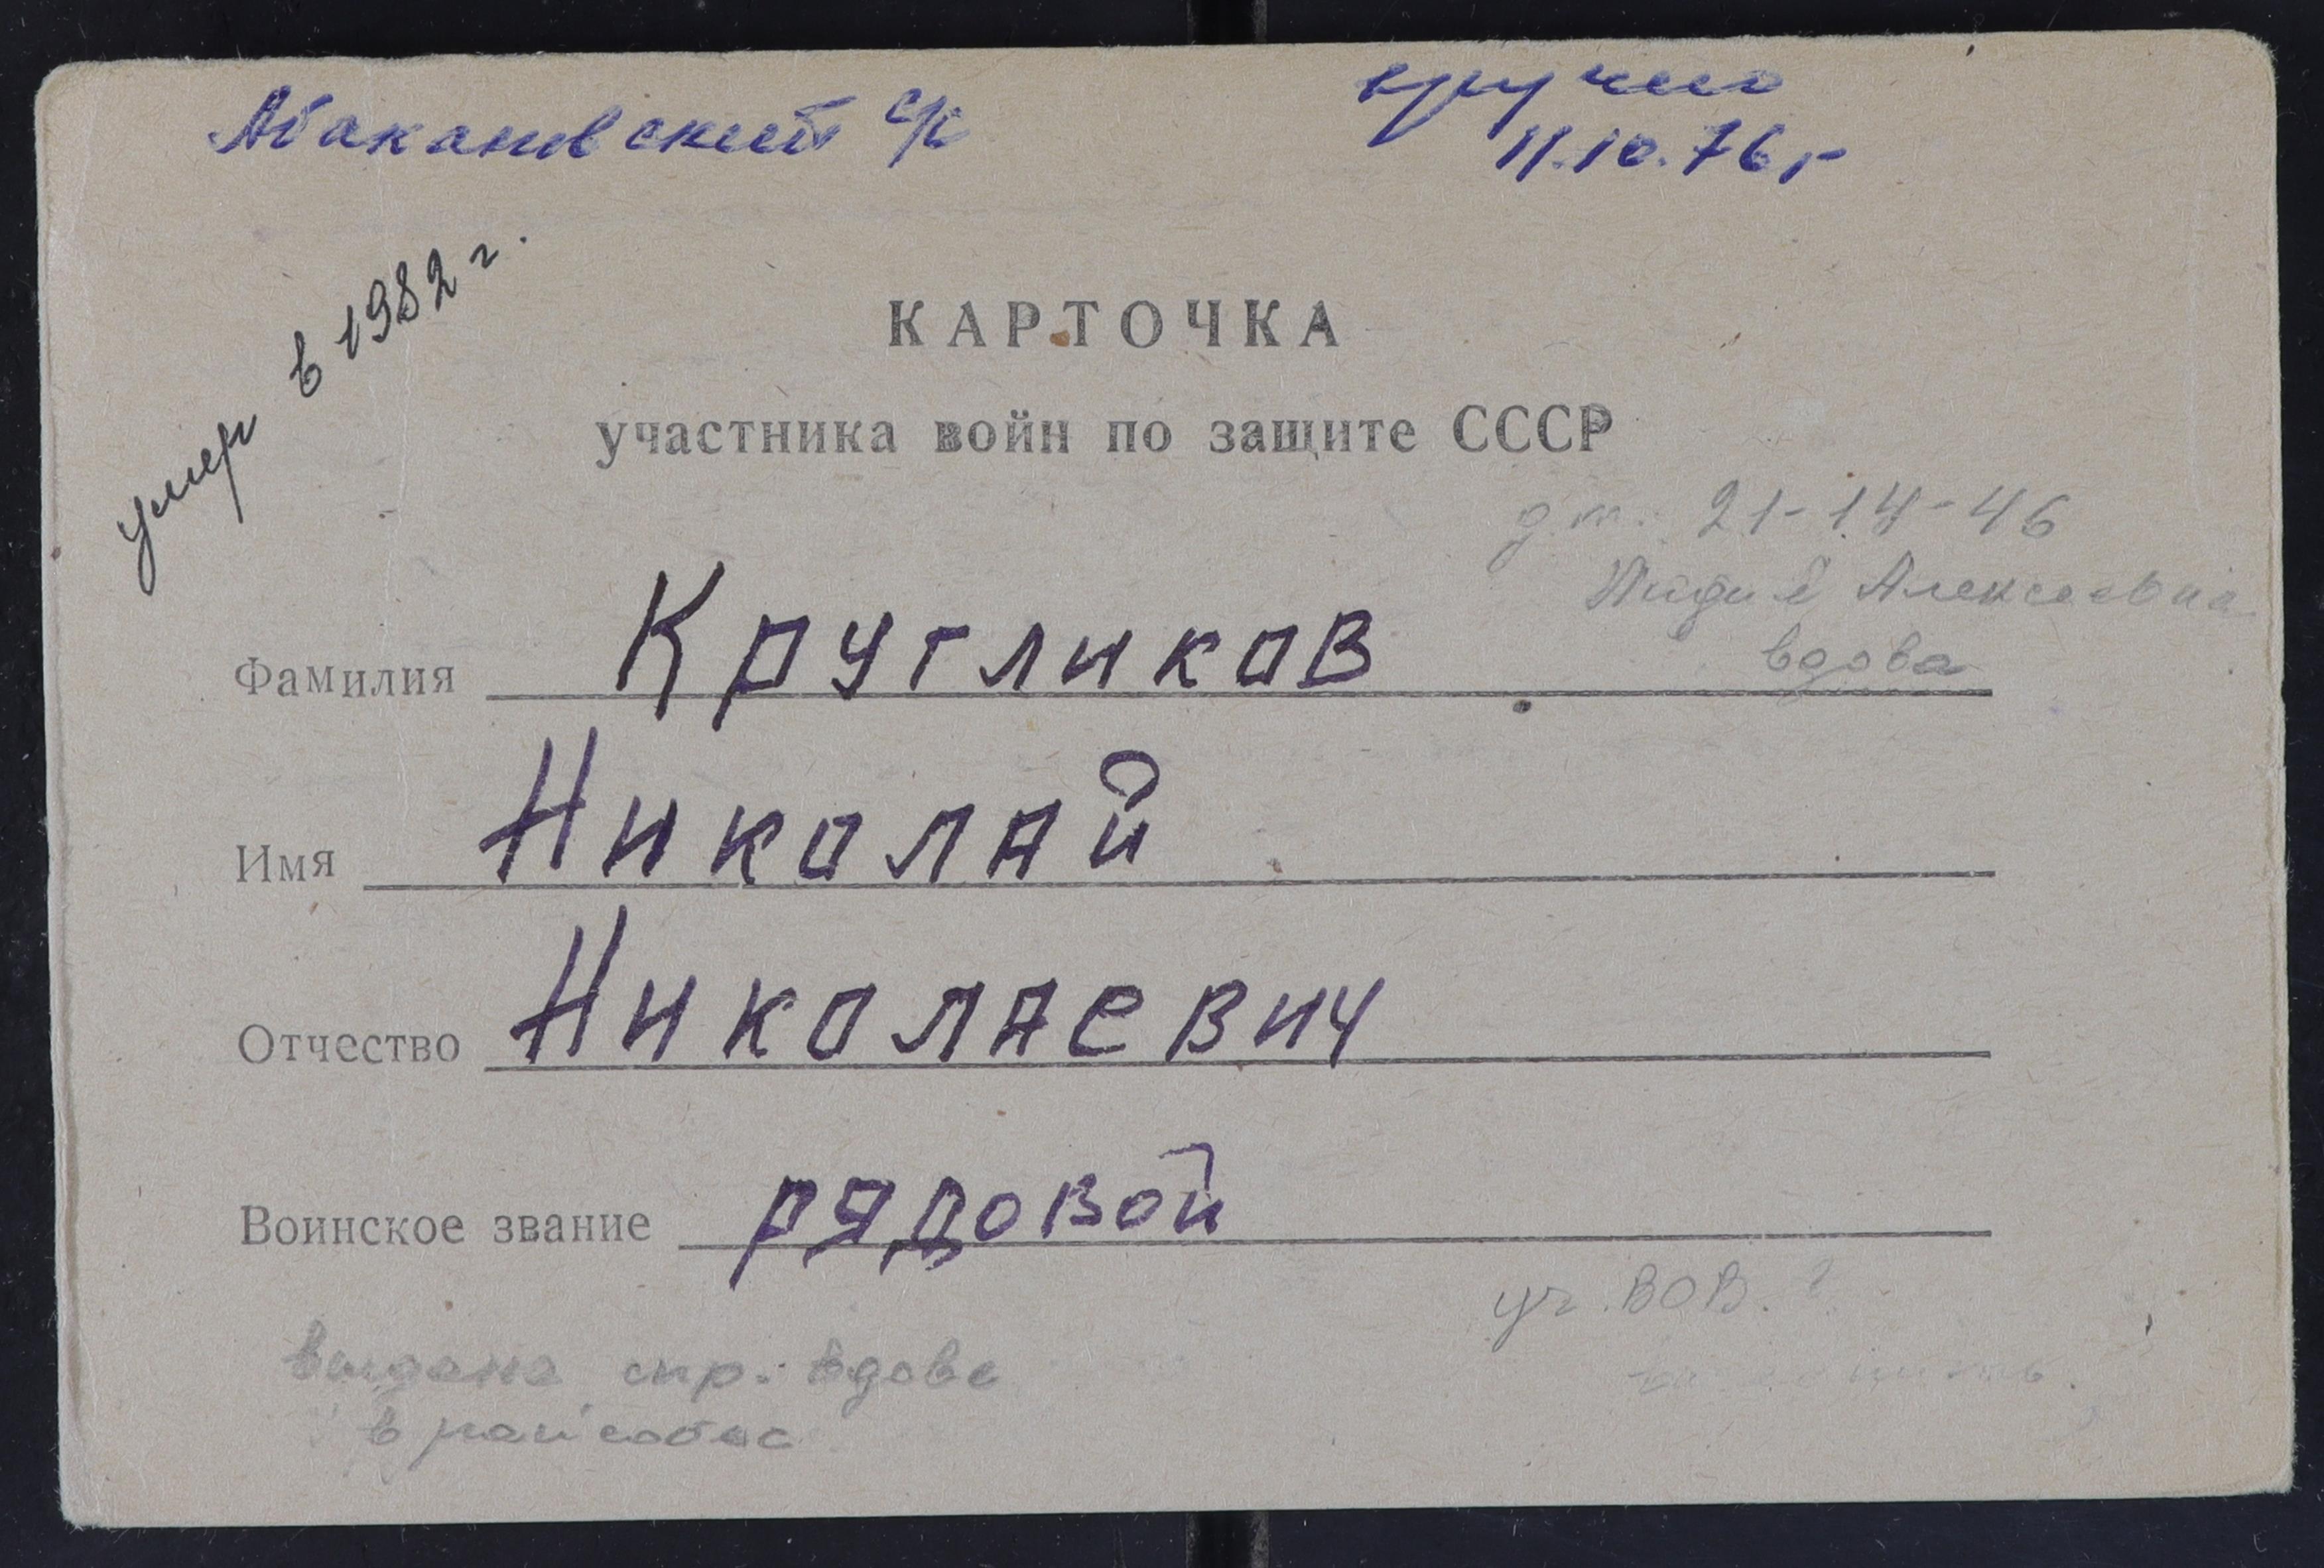 Абакановский с/с
вручено
11.10.76 г
умер в 1982 г.
КАРТОЧКА
участника войн по защите СССР
д.т. 21-14-46
Алексеевна
вдова
Фамилия Кругликов
Имя Николай
Отчество Николаевич
Воинское звание рядовой
уч. ВОВ.
выдана спр. вдове
в райсобес